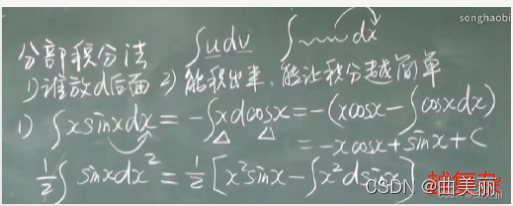 songhaobi
分部积分法 ∫udv ∫~~~dx
1)谁放d后面 2)能积出来,能让积分越简单
1) ∫xsinxdx = -∫xdcosx = -(xcosx - ∫cosxdx)
= -xcosx + sinx + C
1/2∫sinxdx² = 1/2[x²sinx - ∫x²dsinx] 越复杂
CSDN @曲美丽